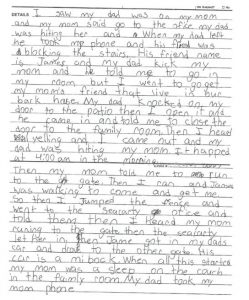 DETAILS I saw my dad was on my mom
and my mom said go to the ofice my dad
was hiting her and . When my dad left
he took me phone and his friend was
blocking the stairs. His friend name
is James and my dad kick my
mom and he told me to go in
my room but I went to go get
my mom's friend that live is
back house. My dad knocked on my
door to the patio then I open it and
he came in and told me to close the
door to the family room. Then I heard
yelling and came out and my
dad was hiting my mom. It happed
at 4:00 am in the morning
Then my mom told me to run
to the gate. Then I ran and James
was walking to come and get me
So then I Jumped the fence and
went to the searcurty office and
told them then I heard my mom
runing to the gate then the searcurty
let her in then Jame got in my dads
car and drove to the other gate. His
car is a . When all this started
my mom was a sleep on the couch
in the family room. My dad took my
mom phone